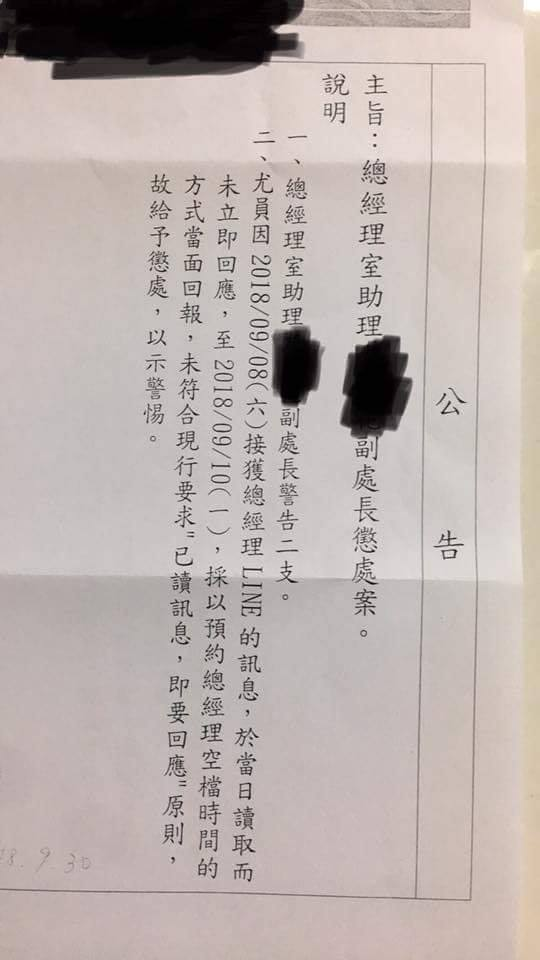 公告
主旨：總經理室助理副處長懲處案。
說明
一、總經理室助理副處長警告二支。
二、尤員因2018/09/08(六)接獲總經理LINE的訊息，於當日讀取而
未立即回應，至2018/09/10(一)，採以預約總經理空檔時間的
方式當面回報，未符合現行要求"已讀訊息，即要回應"原則，
故給予懲處，以示警惕。
8.9.30